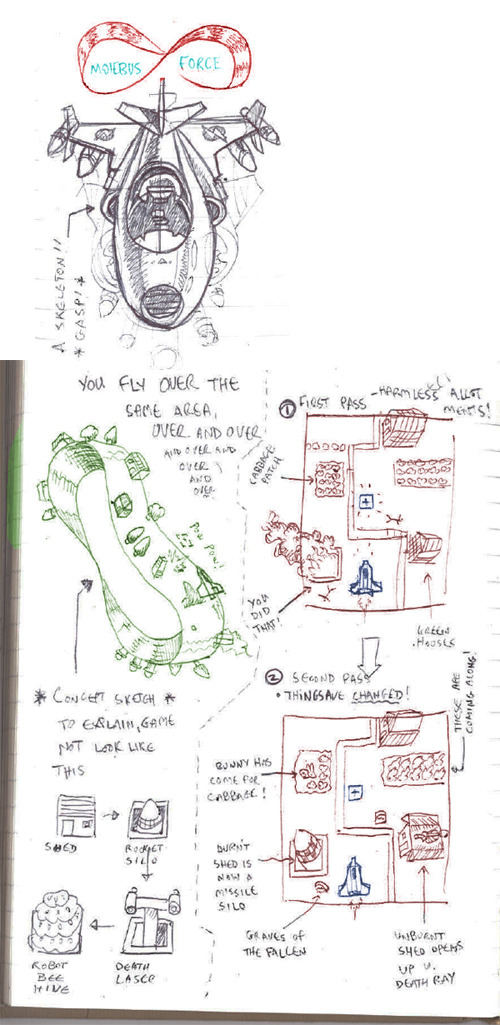 MOIEBUS FORCE
A SKELETON!!
* GASP! *
YOU FLY OVER THE
SAME AREA,
OVER AND OVER
AND OVER AND
OVER
AND
OVER
POW POW!
* CONCEPT SKETCH *
TO EXPLAIN, GAME
NOT LOOK LIKE
THIS
SHED
ROCKET
SILO
ROBOT
BEE
HIVE
DEATH
LASER
① FIRST PASS - HARMLESS ALLOT
MENTS!
CABBAGE
PATCH
YOU
DID
THAT!
GREEN
HOUSES
② SECOND PASS
• THINGS AVE CHANGED!
THESE ARE
COMING ALONG!
BUNNY HAS
COME FOR
CABBAGE!
BURNT
SHED IS
NOW A
MISSILE
SILO
GRAVES OF
THE FALLEN
UNBURNT
SHED OPENS
UP
DEATH RAY